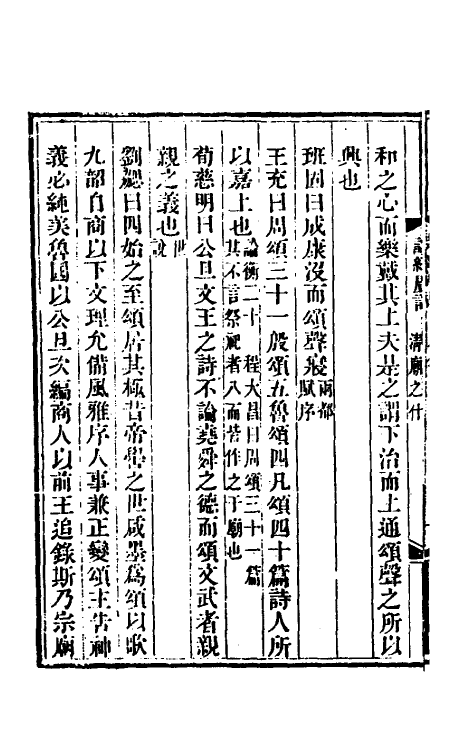 詩經 清廟之什
和之心而樂戴其上夫是之謂下治而上通頌聲之所以
興也
班固曰成康沒而頌聲寢兩都賦序
王充曰周頌三十一殷頌五魯頌四凡頌四十篇詩人所
以嘉上也論衡二十 程大昌曰周頌三十一篇其不言祭祀者八而皆作之于廟也
荀慈明曰公旦文王之詩不論堯舜之德而頌文武者親
親之義也世說
劉勰曰四始之至頌居其極昔帝嚳之世咸墨爲頌以歌
九韶自商以下文理允備風雅序人事兼正變頌主告神
義必純美魯國以公旦次編商人以前王追錄斯乃宗廟